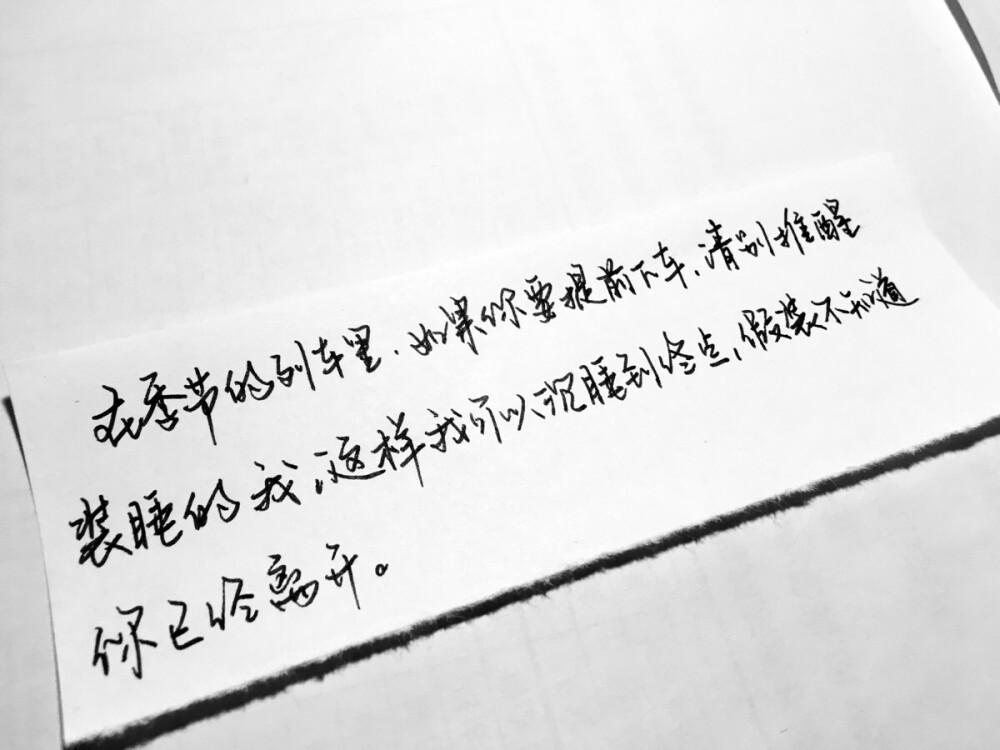 在季节的列车里，如果你要提前下车，请别推醒
装睡的我，这样我可以沉睡到终点，假装不知道
你已经离开。